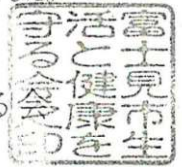 富士見市生
活と健康を
守る会